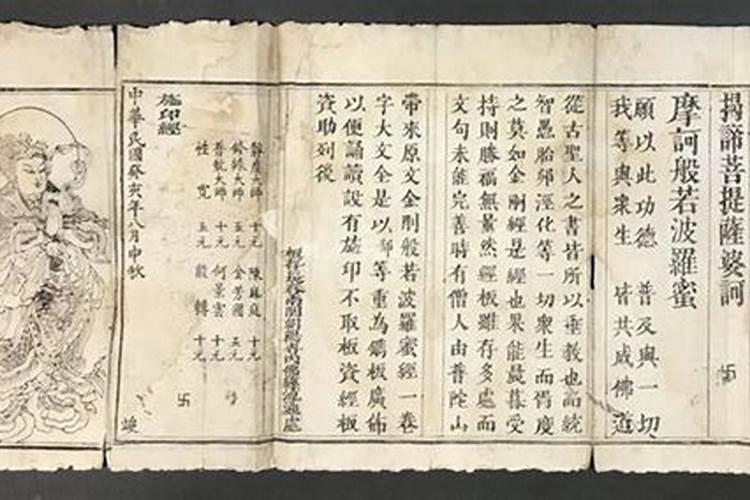 揭諦菩提薩婆訶
卐
摩訶般若波羅蜜
願以此功德 普及與一切
我等與衆生 皆共成佛道
從古聖人之書皆所以垂教也而統
智愚胎卵溼化等一切衆生而胥度
之莫如金剛經是經也果能晨暮受
持則勝福無量然經板雖存多處而
文句未能完善時有僧人由普陀山
帶來原文金剛般若波羅蜜經一卷
字大文全是以 等重為鐫板廣佈
以便誦讀設有施印不取板資經板
資助列後
施印經
大師 十元 陳 庭 十元
大師 五元 金芳國 五元
普 大師 十元 何景雲 十元
性寬 五元 殷轉 十元
卐
中華民國癸亥年八月中秋
竣